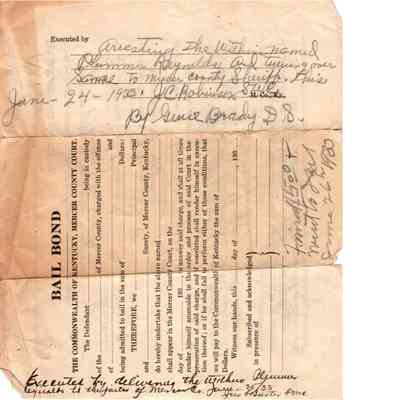 Executed by
Arresting the within named
Plummer Reynolds and turning over
same to Mercer county Sheriff. this
June - 24 - 1933. J.C. Robinson
By Genie Brady D.S.
BAIL BOND
THE COMMONWEALTH OF KENTUCKY, MERCER COUNTY COURT.
The Defendant being in custody
of the of Mercer County, charged with the offense
of and
being admitted to bail in the sum of Dollars:
THEREFORE, we Principal
and Surety, of Mercer County, Kentucky,
do hereby undertake that the above named
shall appear in the Mercer County Court, on the
day of 193 , to answer said charge, and shall at all times
render himself amenable to the orders and process of said Court in the
prosecution of said charge, and if convicted shall render himself in execu-
tion thereof; or if he shall fail to perform either of these conditions, that
we will pay to the Commonwealth of Kentucky the sum of
Dollars.
Witness our hands, this day of 193
Subscribed and acknowledged
in presence of
sent to Jail
June 26
Executed by delivering the within Plummer
Reynolds to the Jailer of Mercer Co. June